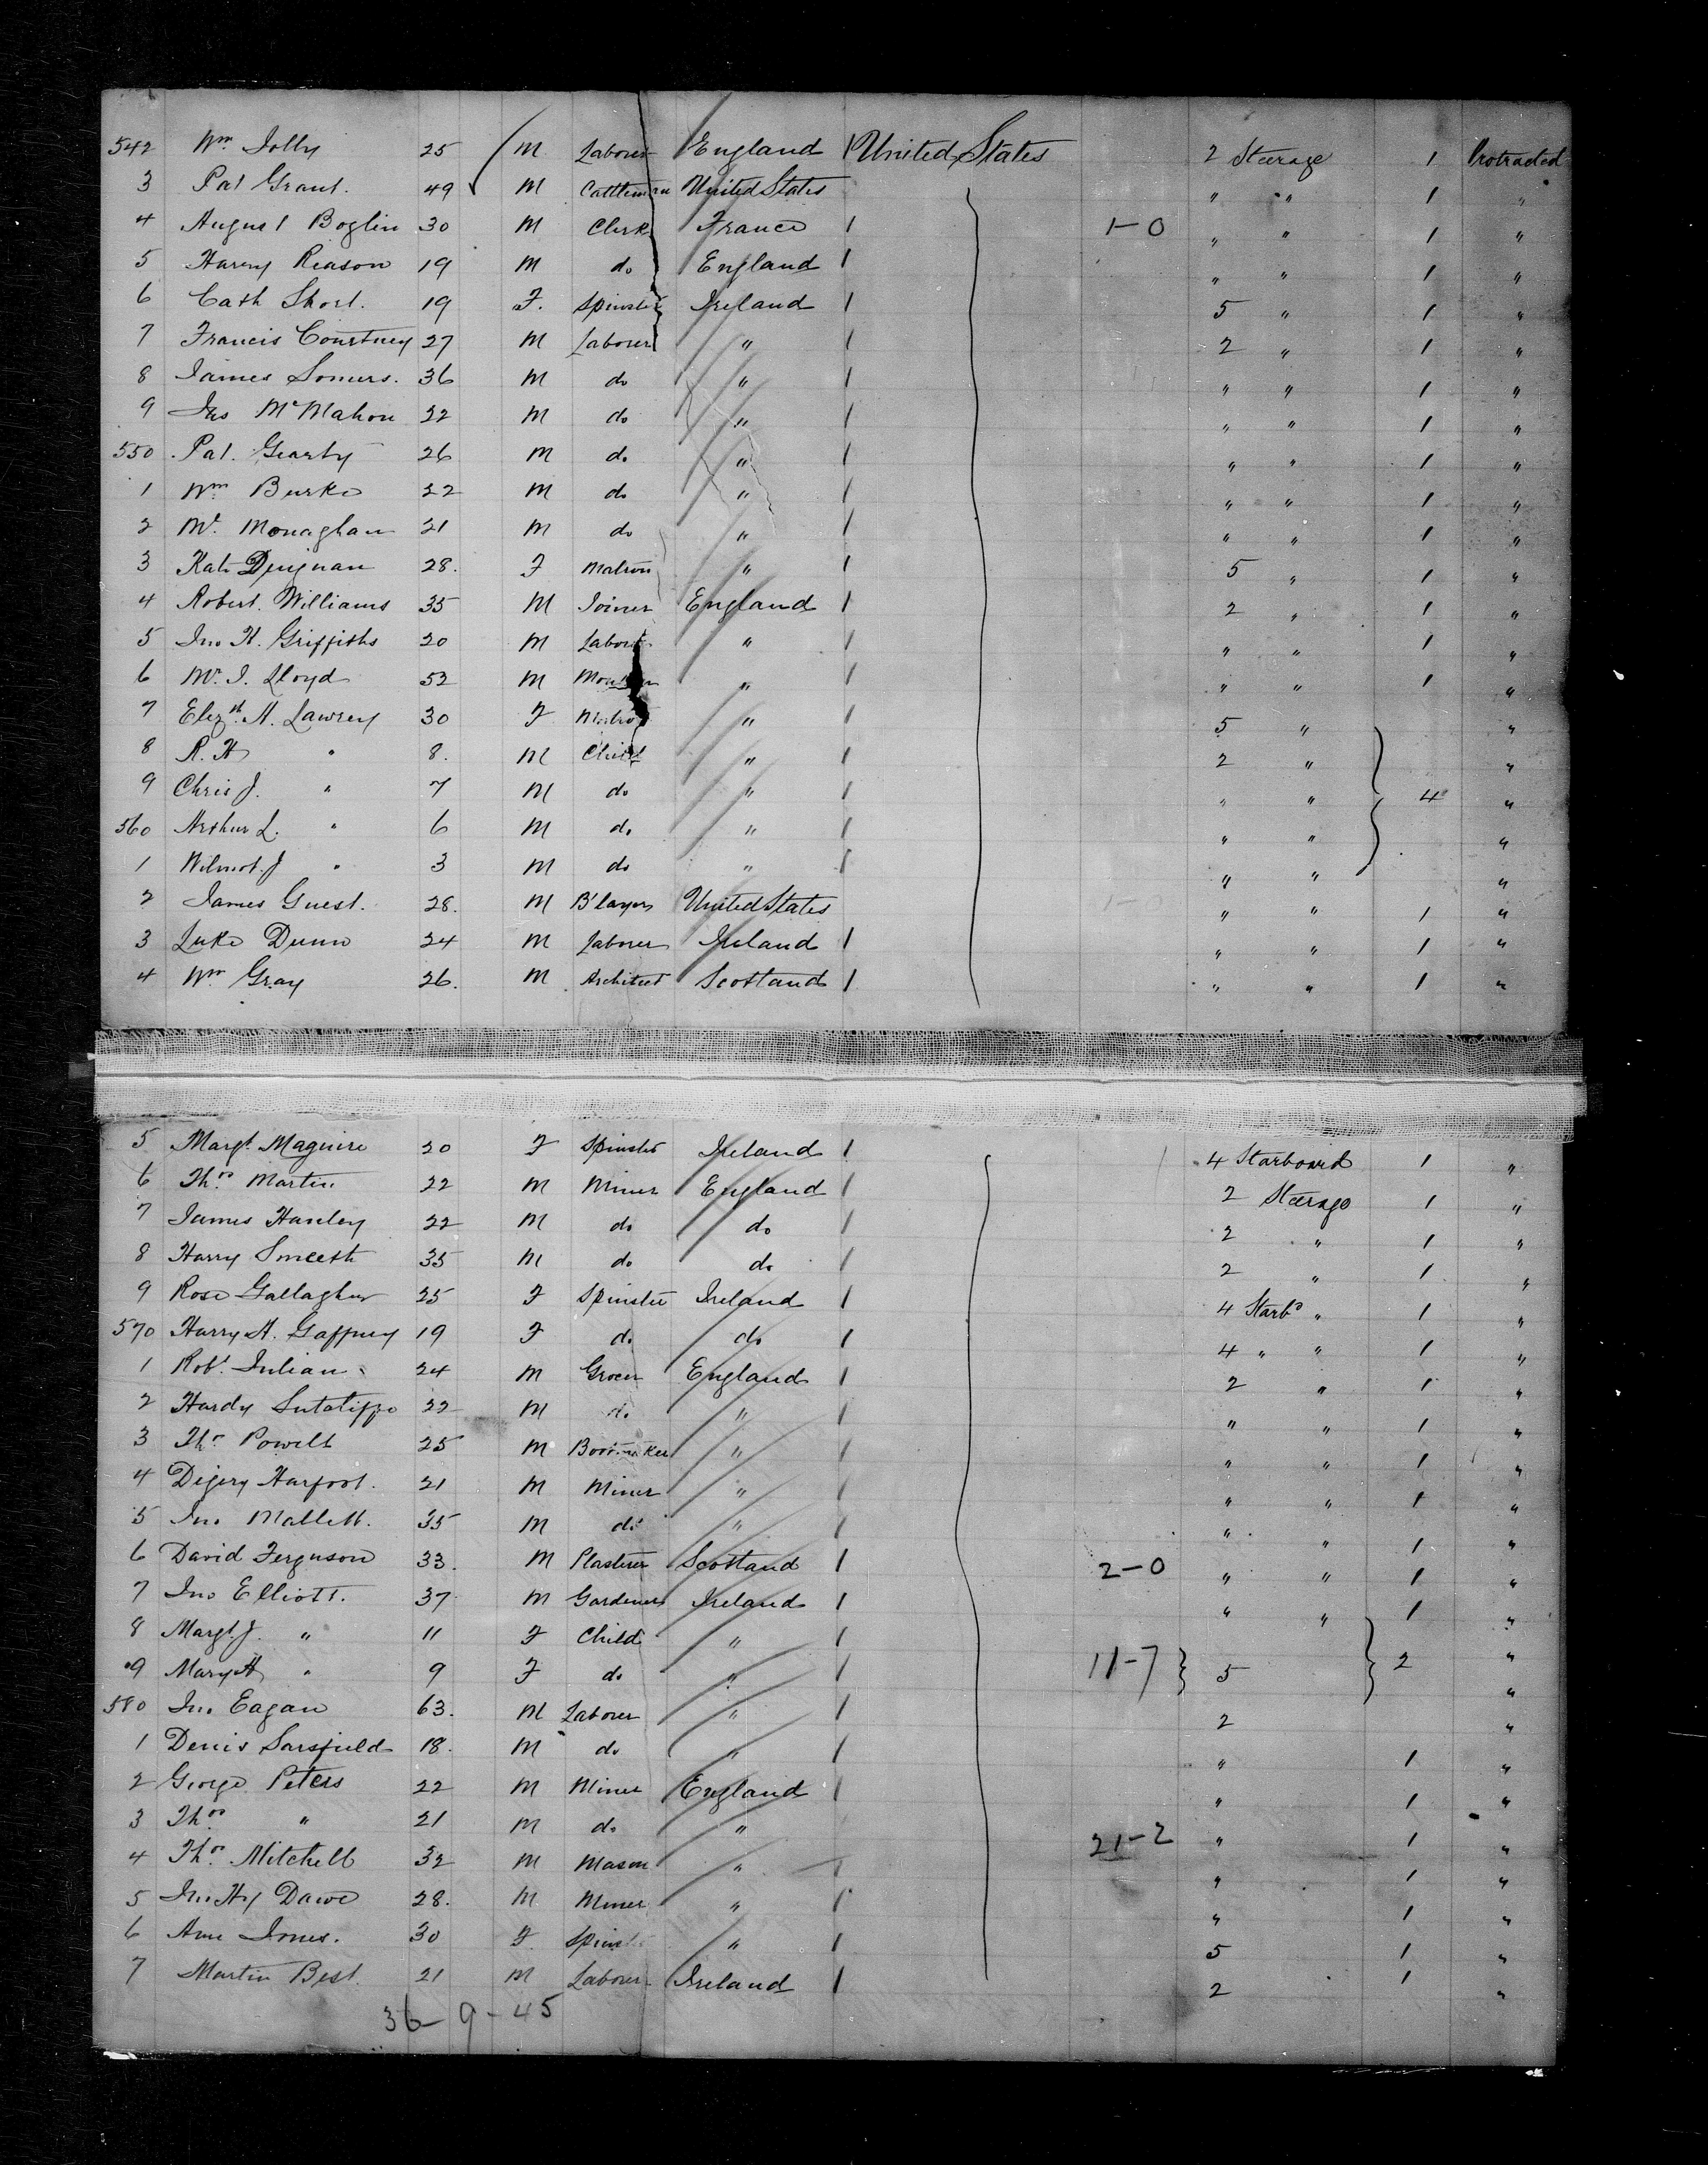 542 Wm Jolly 25 M Laborer England 1 United States 2 Steerage 1 Protracted
3 Pat Grant. 49 M Cattleman United States " " 1 "
4 August Boglin 30 M Clerk France 1 1-0 " " 1 "
5 Harry Reason 19 M do England 1 " " 1 "
6 Cath Short. 19 F. Spinster Ireland 1 5 " 1 "
7 Francis Courtney 27 M Laborer " 1 2 " 1 "
8 James Somers. 36 M do " 1 " " 1 "
9 Jas McMahon 22 M do " 1 " " 1 "
550 Pat. Gearty 26 M do " 1 " " 1 "
1 Wm Burke 22 M do " 1 " " 1 "
2 Mr. Monaghan 21 M do " 1 " " 1 "
3 Kate 28. F Matron " 1 5 " 1 "
4 Robert. Williams 35 M Joiner England 1 2 " 1 "
5 Jno H. Griffiths 20 M Laborer " 1 " " 1 "
6 Mr. J. Lloyd 52 M " 1 " " 1 "
7 Elizth A. Lawrey 30 F Matron " 1 5 " "
8 R. H " 8. M Child " 1 2 " "
9 Chris J. " 7 M do " 1 " " 4 "
560 Arthur L. " 6 M do " 1 " " "
1 Wilmot. J " 3 M do " 1 " " "
2 James Guest. 28. M B'layer United States 1-0 " " 1 "
3 Luke Dunn 24 M Laborer Ireland 1 " " 1 "
4 Wm Gray 26. M Architect Scotland 1 " " 1 "
5 Margt. Maguire 20 F Spinster Ireland 1 4 Starboard 1 "
6 Thos Martin 22 M Miner England 1 2 Steerage 1 "
7 James Hanley 22 M do do 1 2 " 1 "
8 Harry Smeeth 35 M do do 1 2 " 1 "
9 Rose Gallagher 25 F Spinster Ireland 1 4 Starbd " 1 "
570 Harry A. Gaffney 19 F do do 1 4 " " 1 "
1 Robt. Julian 24 M Grocer England 1 2 " 1 "
2 Hardy 22 M do " 1 " " 1 "
3 Thos Powell 25 M Bootmaker " 1 " " 1 "
4 Digery Harfoot. 21 M Miner " 1 " " 1 "
5 Jno Mallett. 35 M do " 1 " " 1 "
6 David Ferguson 33. M Plasterer Scotland 1 2-0 " " 1 "
7 Jno Elliott. 37 M Gardener Ireland 1 " " 1 "
8 Margt. J. " 11 F Child " 1 "
9 Mary A " 9 F do " 1 11-7 5 2 "
580 Jno Eagan 63. M Laborer " 1 2 "
1 Denis Sarsfield 18. M do " 1 " 1 "
2 George Peters 22 M Miner England 1 " 1 "
3 Thos " 21 M do " 21-2 " 1 "
4 Thos Mitchell 32 M Mason " 1 " 1 "
5 Jno Hy Dawe 28. M Miner " 1 " 1 "
6 Ann Jones. 30 F Spinster " 1 5 1 "
7 Martin Best. 21 M Laborer Ireland 1 2 1 "
36-9-45